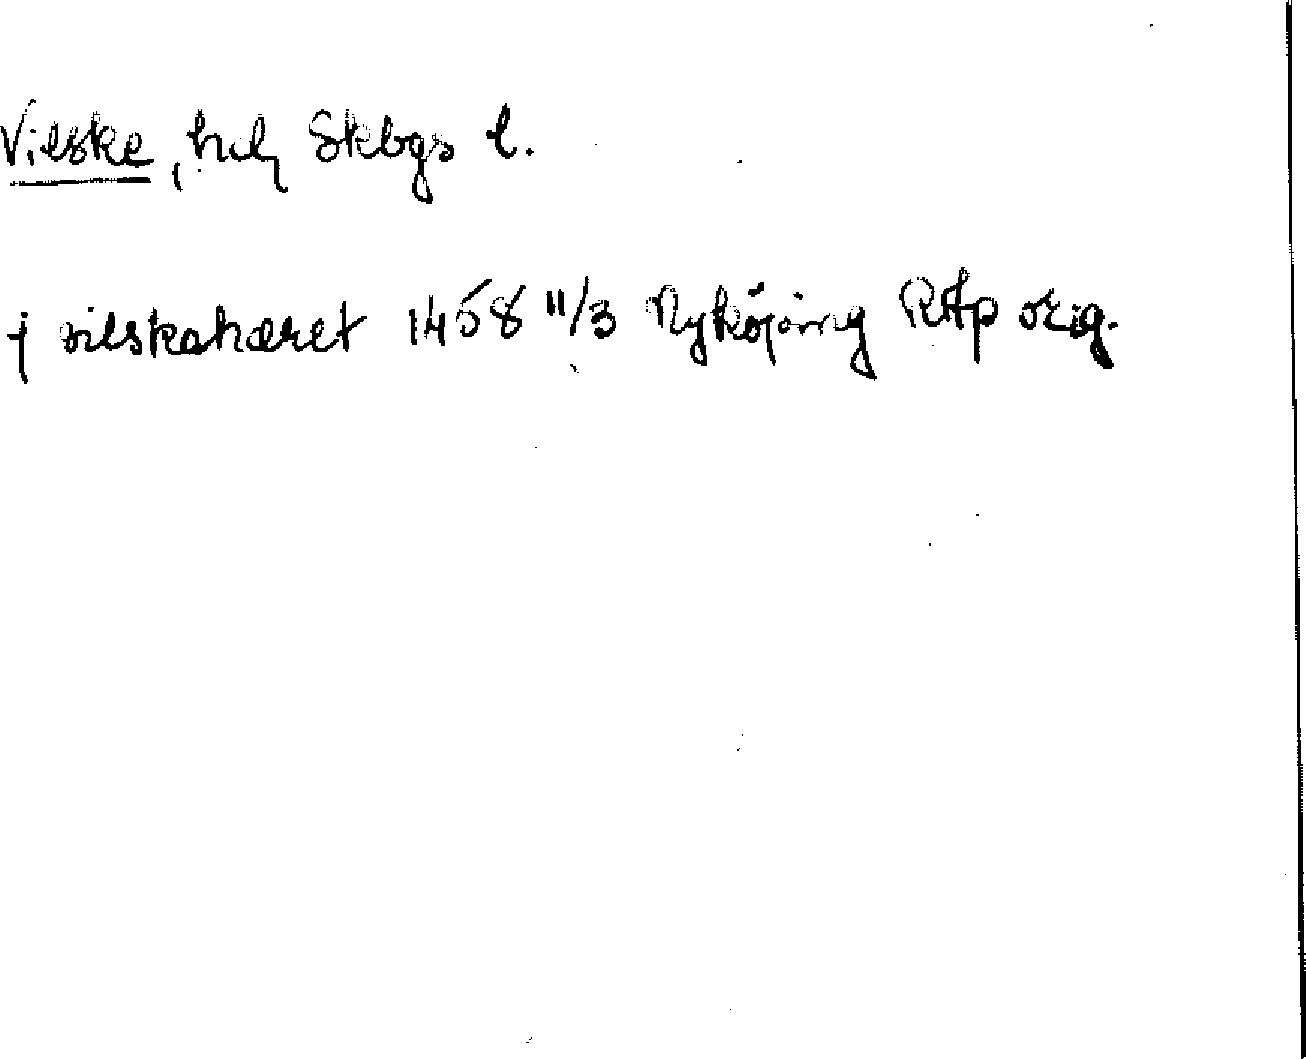 Vilske, hd, Skbgs l.
j vilskahæret 1458 11/3 Nyköping RAp orig.